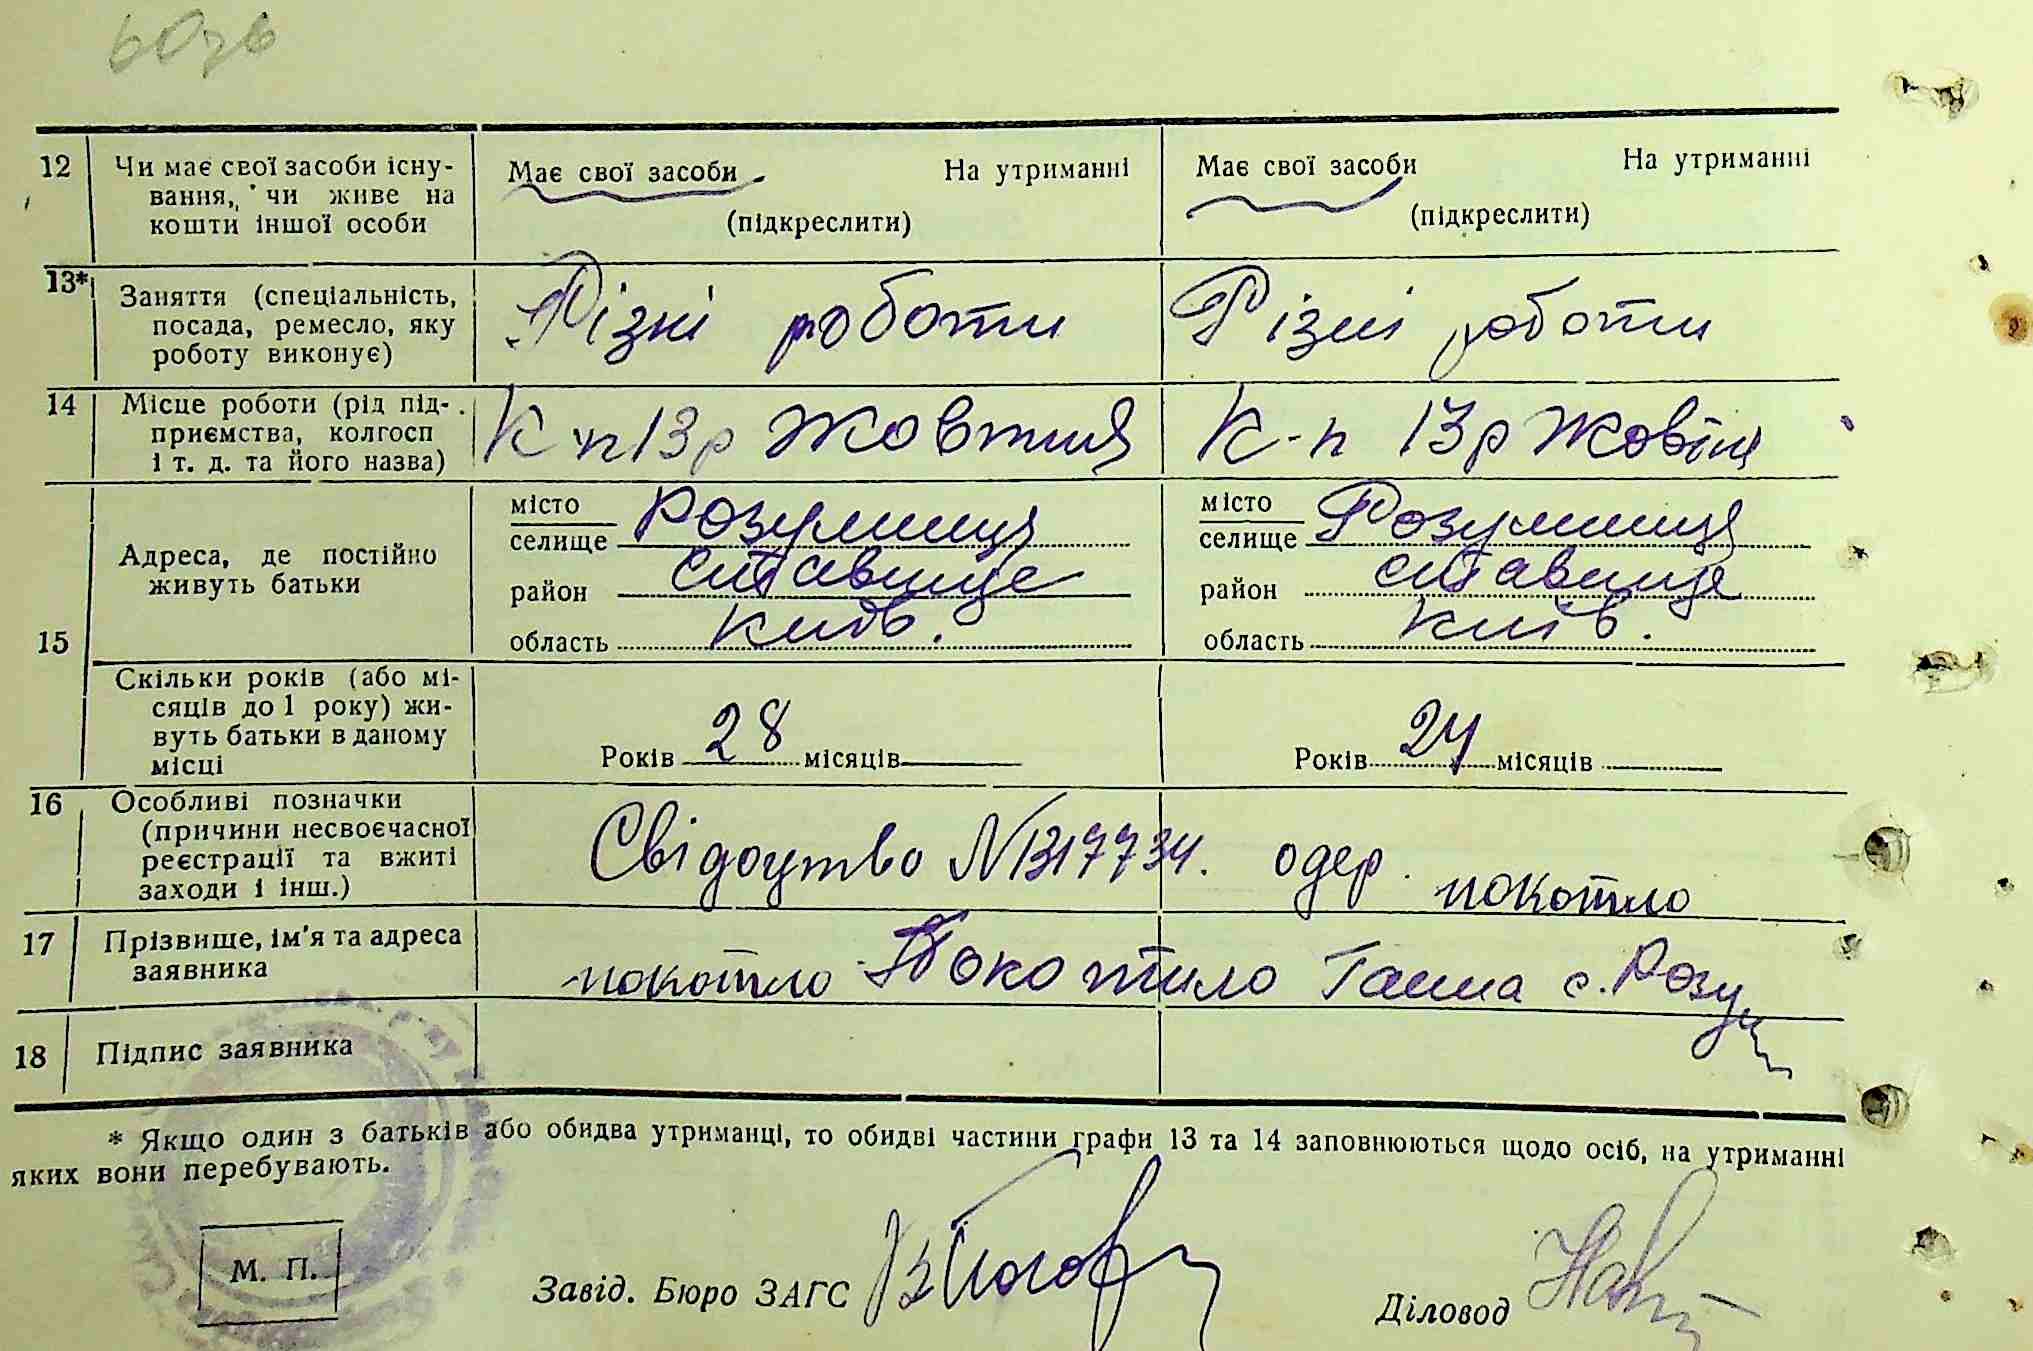 12 Чи має свої засоби існу-
вання, чи живе на
кошти іншої особи
Має свої засоби На утриманні
(підкреслити)
Має свої засоби На утриманні
(підкреслити)
13* Заняття (спеціальність,
посада, ремесло, яку
роботу виконує)
Різні роботи
Різні роботи
14 Місце роботи (рід під-
приємства, колгосп
і т. д. та його назва)
К-п 13 р Жовтня
К-п 13 р Жовтня
15 Адреса, де постійно
живуть батьки
місто
селище Розумниця
район Ставище
область Київ.
місто
селище Розумниця
район Ставище
область Київ.
Скільки років (або мі-
сяців до 1 року) жи-
вуть батьки в даному
місці
Років 28 місяців
Років 24 місяців
16 Особливі позначки
(причини несвоєчасної
реєстрації та вжиті
заходи і інш.)
Свідоцтво N 1317734. одер. покотило
17 Прізвище, ім'я та адреса
заявника
покотило Покотило Ганна с. Розум
18 Підпис заявника
* Якщо один з батьків або обидва утриманці, то обидві частини графи 13 та 14 заповнюються щодо осіб, на утриманні
яких вони перебувають.
М. П.
Завід. Бюро ЗАГС
Діловод